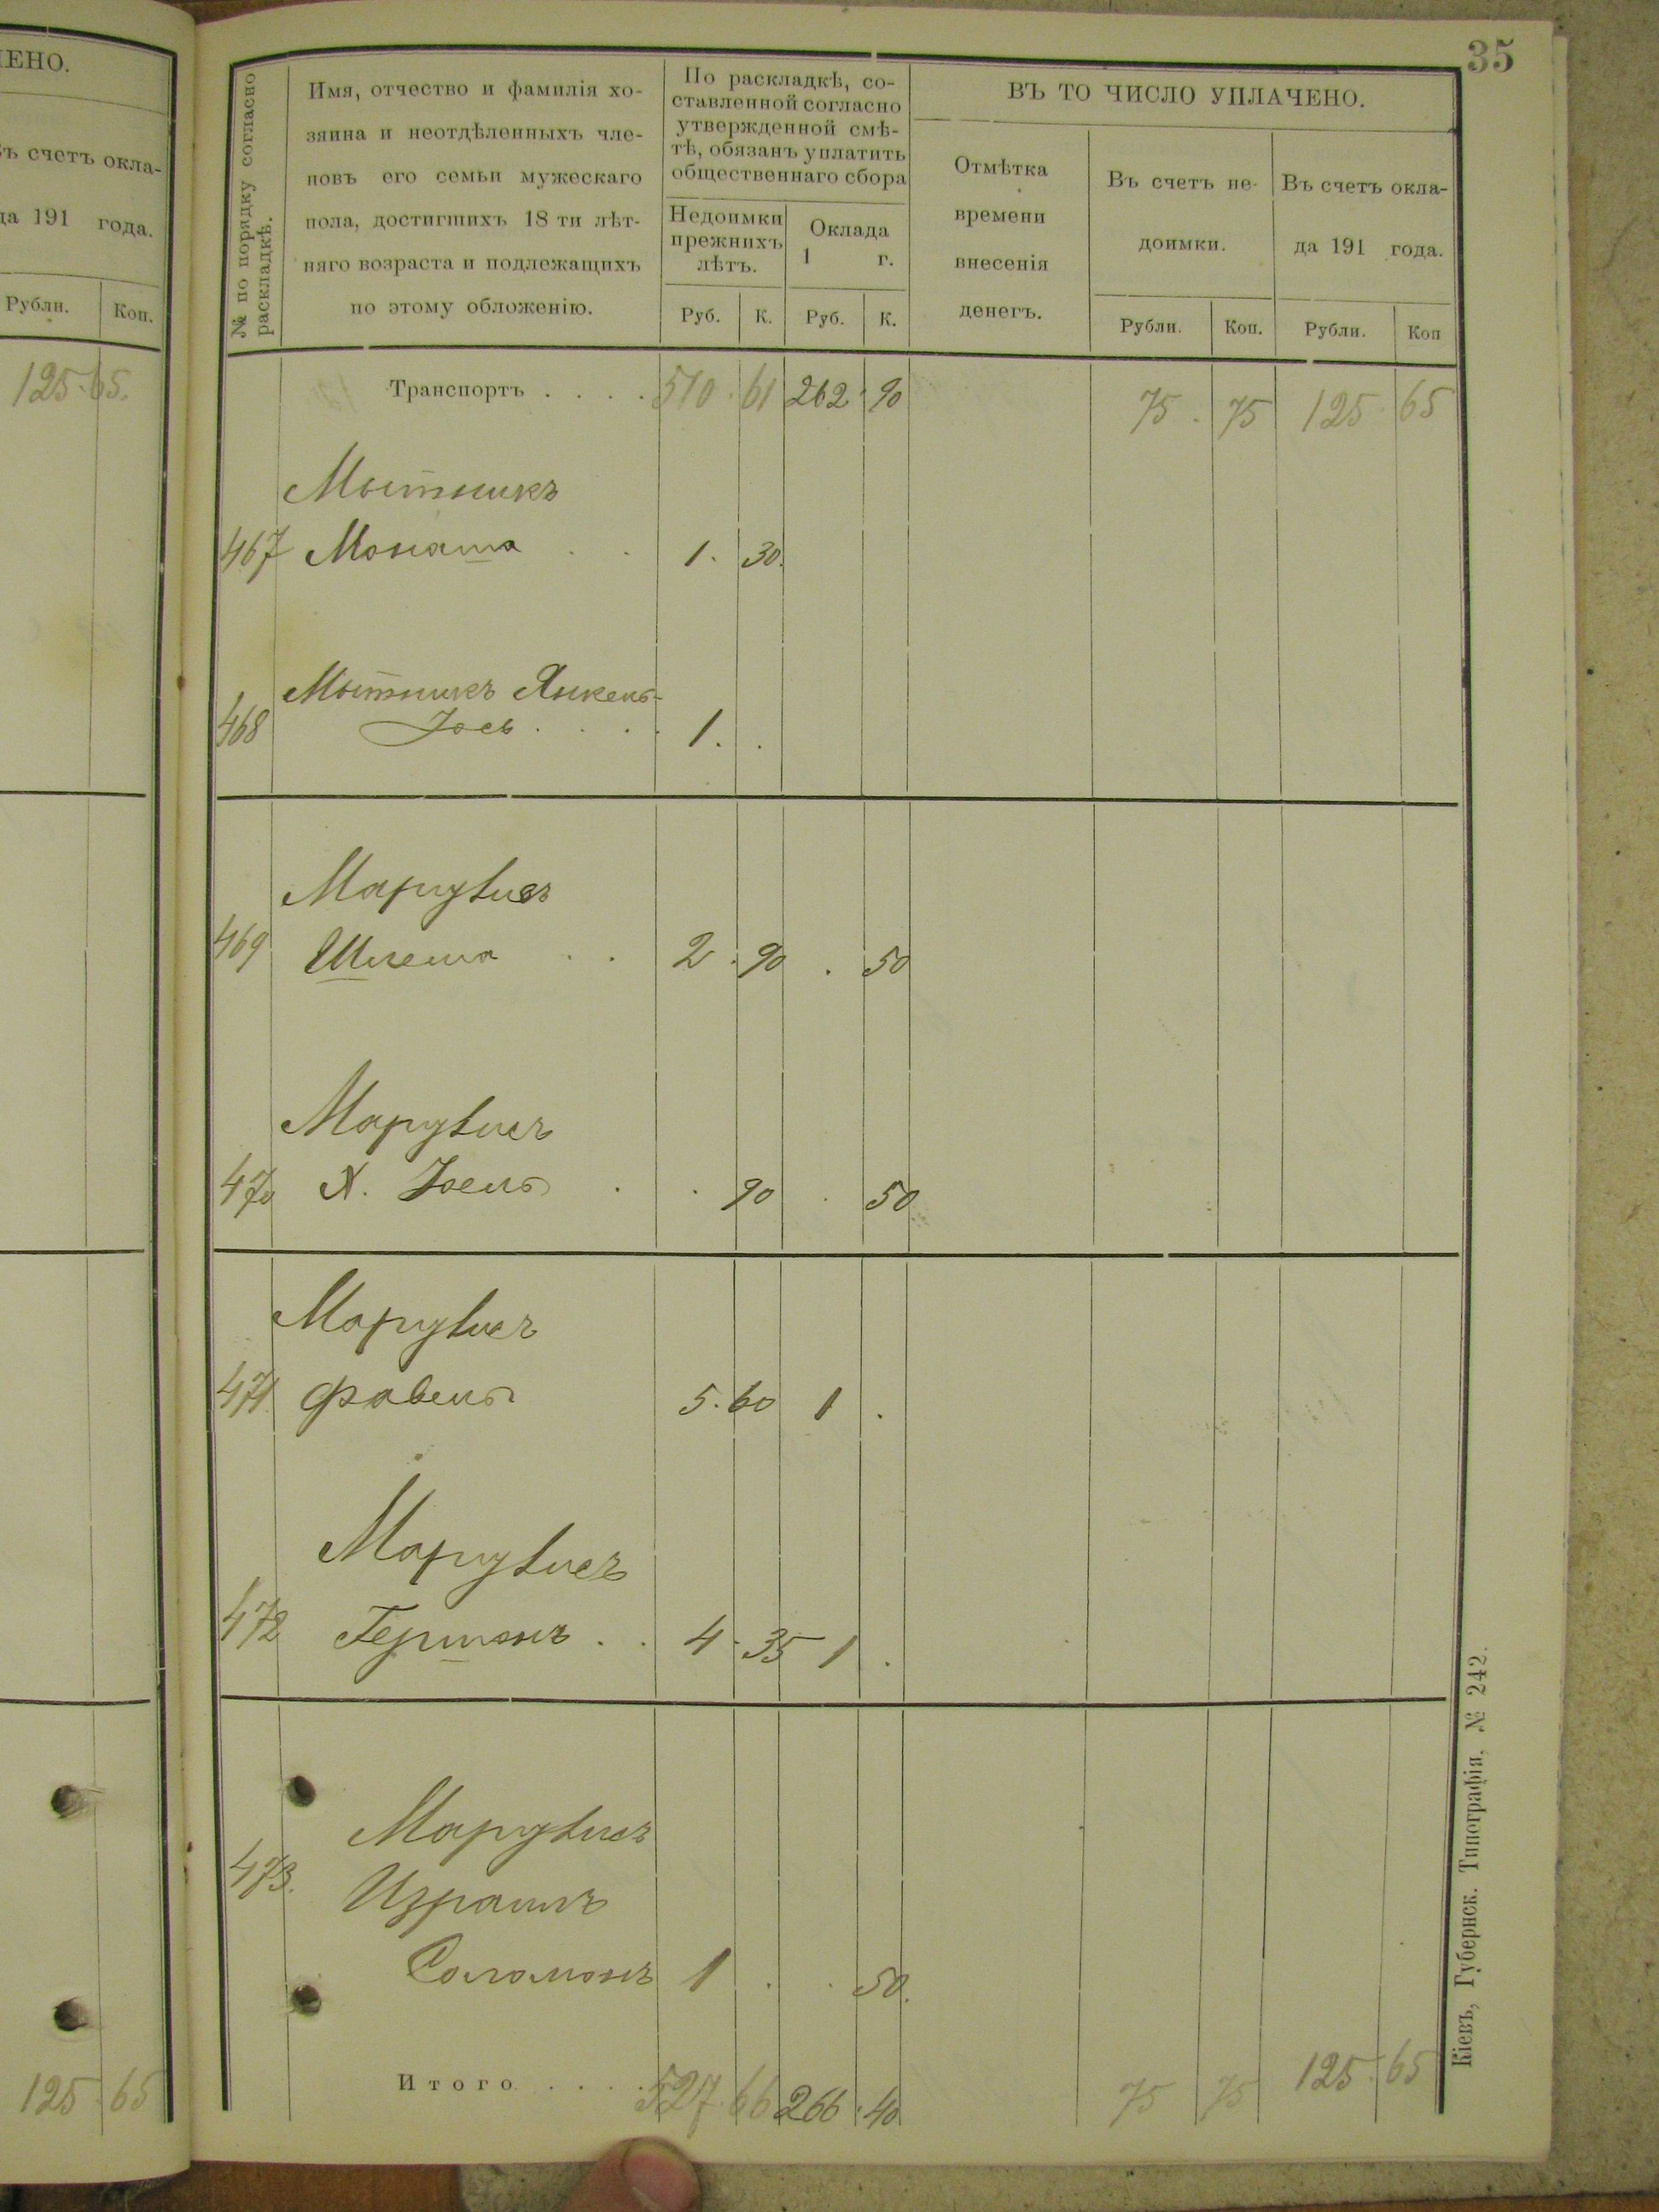 ЧЕНО.
Въ счетъ окла-
да 191 года.
Рубли. Коп.
125. 65.
125. 65
35
№ по порядку согласно раскладкѣ.
Имя, отчество и фамилія хо-
зяина и неотдѣленныхъ чле-
новъ его семьи мужескаго
пола, достигшихъ 18 ти лѣт-
няго возраста и подлежащихъ
по этому обложенію.
По раскладкѣ, со-
ставленной согласно
утвержденной смѣ-
тѣ, обязанъ уплатить
общественнаго сбора
Недоимки
прежнихъ
лѣтъ.
Оклада
1 г.
Руб. К. Руб. К.
ВЪ ТО ЧИСЛО УПЛАЧЕНО.
Отмѣтка
времени
внесенія
денегъ.
Въ счетъ не-
доимки.
Въ счетъ окла-
да 191 года.
Рубли. Коп. Рубли. Коп
Транспортъ . . . . 510. 61 262. 90 75. 75 125. 65
Мытникъ
467 Монаша . . 1. 30.
Мытникъ Янкель-
468 Іось . . . . 1. .
Марувисъ
469 Шлема . . 2. 90 . 50
Марувисъ
470 Х. Іоель . . 90 . 50
Марувисъ
471 Фавель 5. 60 1 .
Марувисъ
472 Гершонъ . . 4. 35 1 .
Марувисъ
473. Израиль
Соломонъ 1 . . 50.
Итого . . . . 527. 66 266. 40 75 75 125. 65
Кіевъ, Губернск. Типографія, № 242.